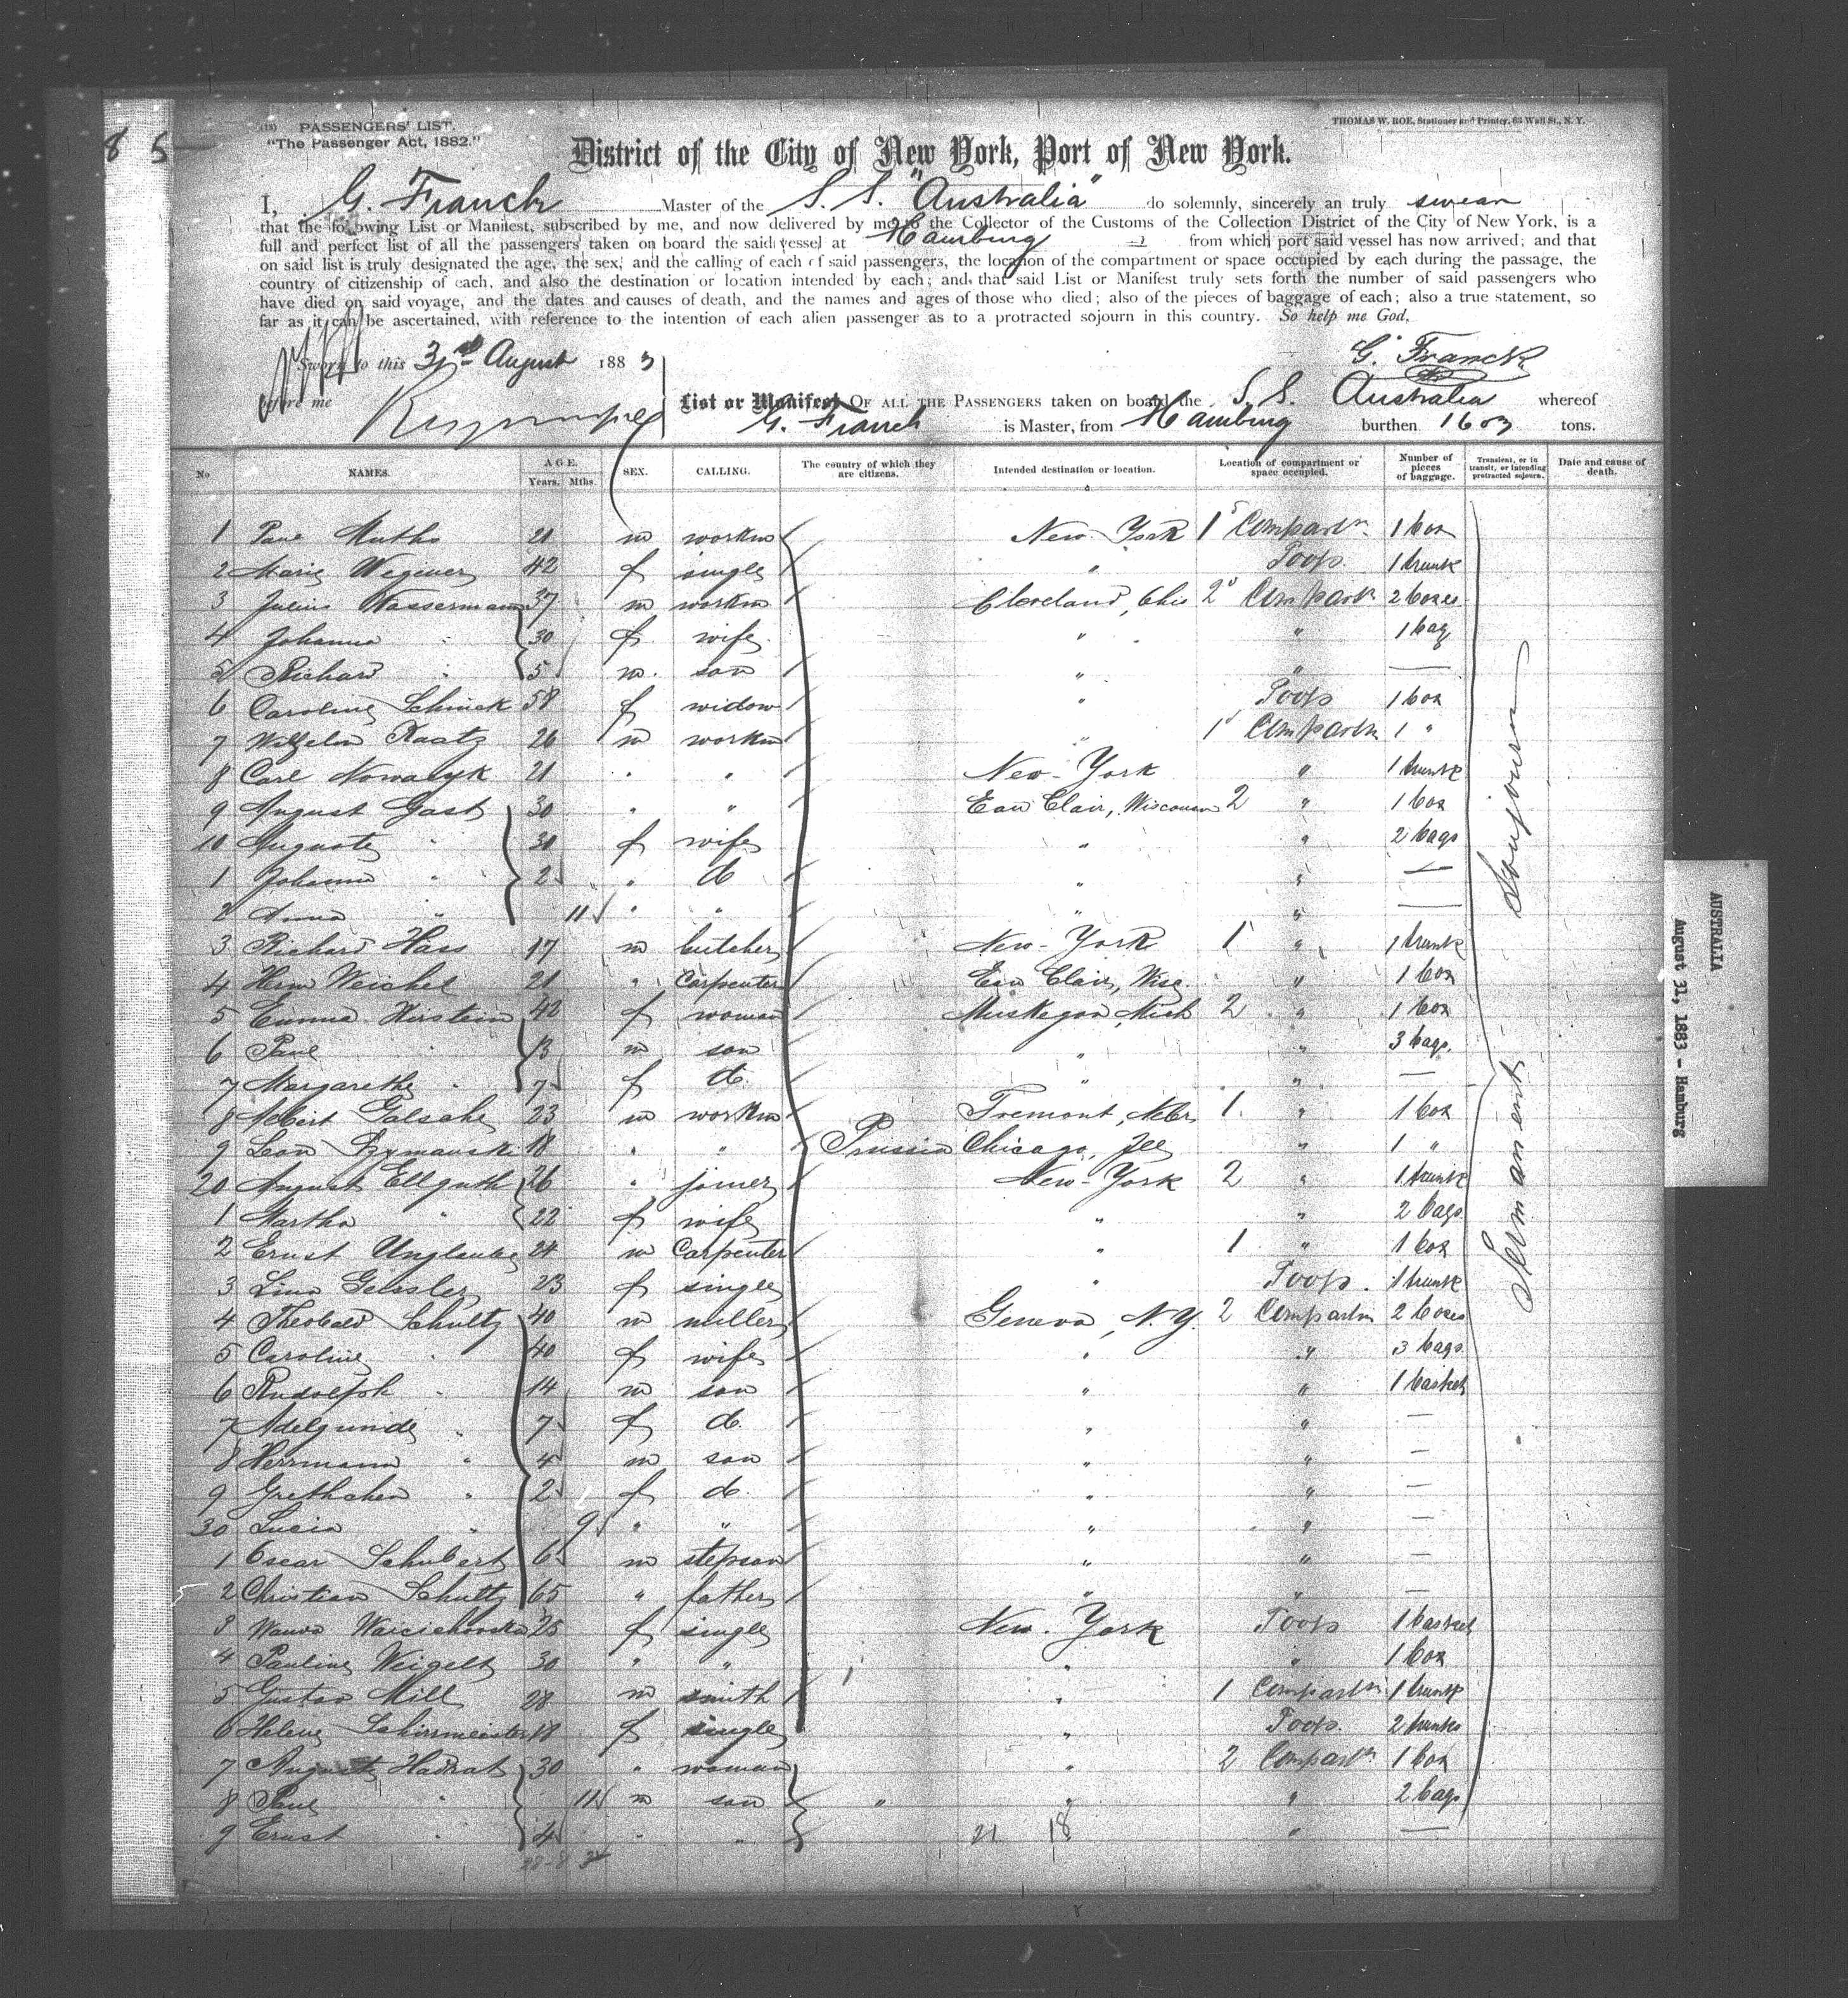 8 5
(18) PASSENGERS' LIST.
"The Passenger Act, 1882."
THOMAS W. ROE, Stationer and Printer, 63 Wall St., N. Y.
District of the City of New York, Port of New York.
I, G. Franck Master of the S. S. "Australia" do solemnly, sincerely an truly swear
that the following List or Manifest, subscribed by me, and now delivered by me to the Collector of the Customs of the Collection District of the City of New York, is a
full and perfect list of all the passengers taken on board the said vessel at Hamburg from which port said vessel has now arrived; and that
on said list is truly designated the age, the sex, and the calling of each of said passengers, the location of the compartment or space occupied by each during the passage, the
country of citizenship of each, and also the destination or location intended by each; and that said List or Manifest truly sets forth the number of said passengers who
have died on said voyage, and the dates and causes of death, and the names and ages of those who died; also of the pieces of baggage of each; also a true statement, so
far as it can be ascertained, with reference to the intention of each alien passenger as to a protracted sojourn in this country. So help me God.
Sworn to this 31st August 1883
G. Franck
before me
List or Manifest OF ALL THE PASSENGERS taken on board the S. S. Australia whereof
G. Franck is Master, from Hamburg burthen 1603 tons.
No NAMES. AGE. Years. Mths. SEX. CALLING. The country of which they are citizens. Intended destination or location. Location of compartment or space occupied. Number of pieces of baggage. Transient, or in transit, or intending protracted sojourn. Date and cause of death.
1 Paul Muths 21 m workm New-York 1 Compartm. 1 box
2 Marie Wegener 42 f single " Poop. 1 trunk
3 Julius Wassermann 37 m workm Cleveland, Ohio 2 Compartm 2 boxes
4 Johanna " 30 f wife " " 1 bag
5 Richard " 5 m. son " " —
6 Caroline Schinek 58 f widow " Poop 1 box
7 Wilhelm Raatz 26 m workm " 1 Compartm 1 "
8 Carl Nowaeyk 21 " " New-York " 1 trunk
9 August Gast 30 " " Eau Clair, Wisconsin 2 " 1 box
10 Auguste " 30 f wife " " 2 bags
1 Johanna " 2 " d " " —
2 Anna " 11 " " " " —
3 Richard Hass 17 m butcher New-York 1 " 1 trunk
4 Herm Weichel 21 " Carpenter Eau Clair, Wisc. " 1 box
5 Emma Hirstein 42 f woman Muskegon, Mich 2 " 1 box
6 Paul " 13 m son " " 3 bags.
7 Margarethe " 7 f d. " " —
8 Albert Galsche 23 m workm Fremont, Nebr 1. " 1 box
9 Leon Szymanski 18 " " Prussia Chicago, Ill " 1 "
20 August Ellguth 26 " joiner New-York 2 " 1 trunk
1 Martha " 22 f wife " " 2 bags.
2 Ernst Unglaube 24 m Carpenter " 1 " 1 box
3 Lina Geissler 23 f single " Poop. 1 trunk
4 Theobald Schultz 40 m miller Geneva, N.Y. 2 Compartm 2 boxes
5 Caroline " 40 f wife " " 3 bags.
6 Rudolph " 14 m son " " 1 basket
7 Adelgunde " 7 f d. " " —
8 Herrmann " 4 m son " " —
9 Grethchen " 2 f d. " " —
30 Lucia " 9 " " " " —
1 Oscar Schubert 6 m stepson " " —
2 Christian Schultz 65 " father " " —
3 25 f single New-York Poop 1 basket
4 Pauline Weigelt 30 " " " " 1 box
5 Gustav Mill 28 m smith " 1 Compartm 1 trunk
6 Helene Schirrmeister 18 f single " Poop. 2 trunks
7 Auguste Hadrat 30 " woman " 2 Compartm 1 box
8 Paul " 11 m son " " " 2 bags
9 Ernst " 4 " " 21 18 " —
Sourjourn
Permanent
AUSTRALIA
August 31, 1883 - Hamburg